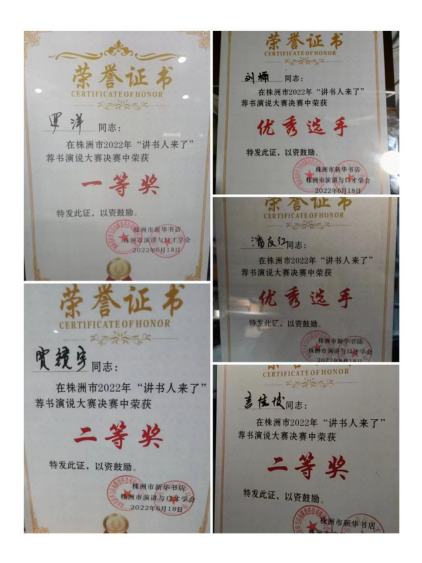 荣誉证书
CERTIFICATE OF HONOR
罗洋 同志：
在株洲市2022年“讲书人来了”
荐书演说大赛决赛中荣获
一等奖
特发此证，以资鼓励。
株洲市新华书店
株洲市演讲与口才学会
2022年6月18日
荣誉证书
CERTIFICATE OF HONOR
同志：
在株洲市2022年“讲书人来了”
荐书演说大赛决赛中荣获
二等奖
特发此证，以资鼓励。
株洲市新华书店
株洲市演讲与口才学会
2022年6月18日
荣誉证书
CERTIFICATE OF HONOR
刘 同志：
在株洲市2022年“讲书人来了”
荐书演说大赛决赛中荣获
优秀选手
特发此证，以资鼓励。
株洲市新华书店
株洲市演讲与口才学会
2022年6月18日
荣誉证书
CERTIFICATE OF HONOR
同志：
在株洲市2022年“讲书人来了”
荐书演说大赛决赛中荣获
优秀选手
特发此证，以资鼓励。
株洲市新华书店
株洲市演讲与口才学会
2022年6月18日
CERTIFICATE OF HONOR
同志：
在株洲市2022年“讲书人来了”
荐书演说大赛决赛中荣获
二等奖
特发此证，以资鼓励。
株洲市新华书店